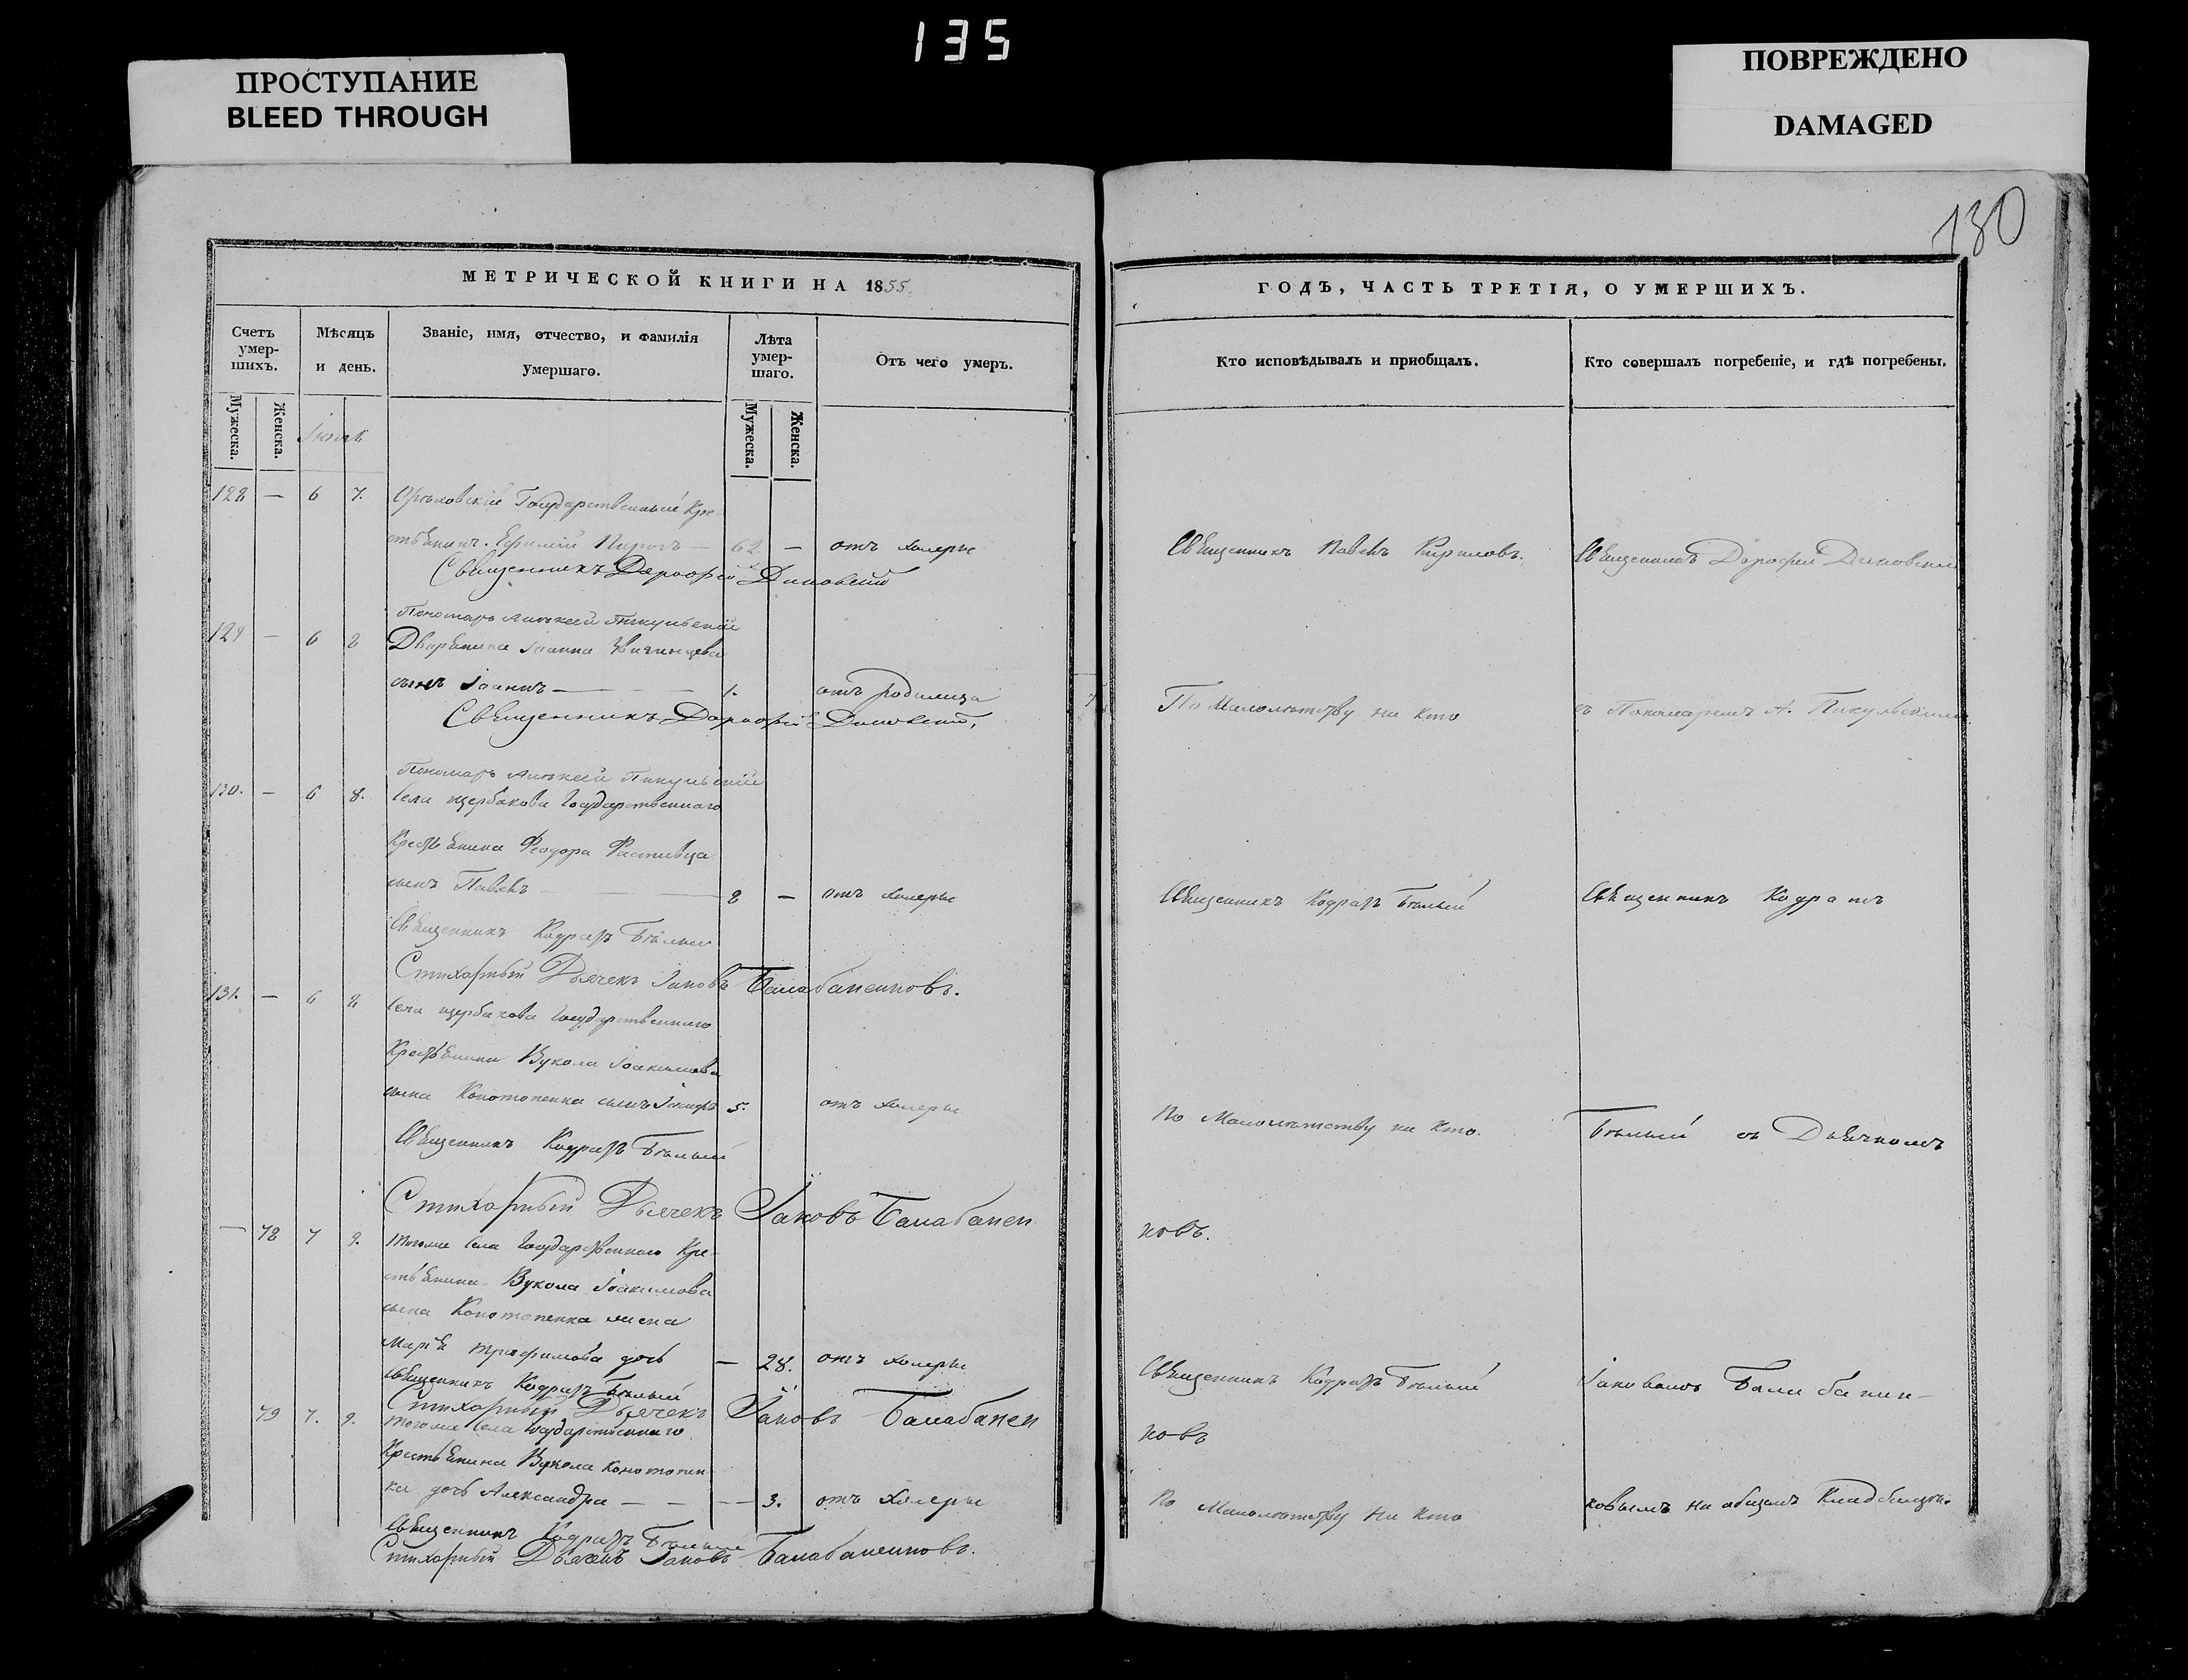 135
ПРОСТУПАНИЕ
BLEED THROUGH
ПОВРЕЖДЕНО
DAMAGED
180
МЕТРИЧЕСКОЙ КНИГИ НА 1855.
Счетъ умер-шихъ.
Мѣсяцъ и день.
Званіе, имя, отчество, и фамилія умершаго.
Лѣта умер-шаго.
Отъ чего умеръ.
Мужеска.
Женска.
Мужеска.
Женска.
128 — 6 7. Государственный Кре-
стьянинъ — 62 — отъ холеры
Священникъ Дорофей
Пономарь Алексѣй Пикульскій
129 — 6 8 Дворянина Іоанна
сынъ Іоаннъ — 1. отъ родимца
Священникъ Дорофей
Пономарь Алексѣй Пикульскій
130. — 6 8. Села Щербакова Государственнаго
Крестьянина Феодора
сынъ Павелъ — 8 — отъ холеры
Священникъ Кодратъ Бѣлый
Стихарный Дьячекъ Іаковъ Балабаненковъ.
131. — 6 8 Села Щербакова Государственнаго
Крестьянина Вукола Іоакимова
сына Конотопенка сынъ 5. отъ холеры
Священникъ Кодратъ Бѣлый
Стихарный Дьячекъ Іаковъ Балабанен
— 78 7 9. Тогоже Села Государственнаго Кре-
стьянина Вукола Іоакимова
сына Конотопенка жена
Марія Трофимова дочь — 28. отъ холеры
Священникъ Кодратъ Бѣлый
Стихарный Дьячекъ Іаковъ Балабанен
79 7. 9. Тогоже Села Государственнаго
Крестьянина Вукола Конотопен
ка дочь Александра — — — 3. отъ холеры
Священникъ Кодратъ Бѣлый
Стихарный Дьячекъ Іаковъ Балабаненковъ.
ГОДЪ, ЧАСТЬ ТРЕТІЯ, О УМЕРШИХЪ.
Кто исповѣдывалъ и пріобщалъ.
Кто совершалъ погребеніе, и гдѣ погребены.
Священникъ Павелъ Кириловъ.
Священникъ Дорофей
По Малолѣтству ни кто
съ Пономаремъ А. Пикульскимъ
Священникъ Кодратъ Бѣлый
Священникъ Кодратъ
По Малолѣтству ни кто.
Бѣлый съ Дьячкомъ
ковъ.
Священникъ Кодратъ Бѣлый
Іаковомъ Балабанен-
ковъ
По Малолѣтству ни кто
ковымъ на общемъ Кладбищѣ.